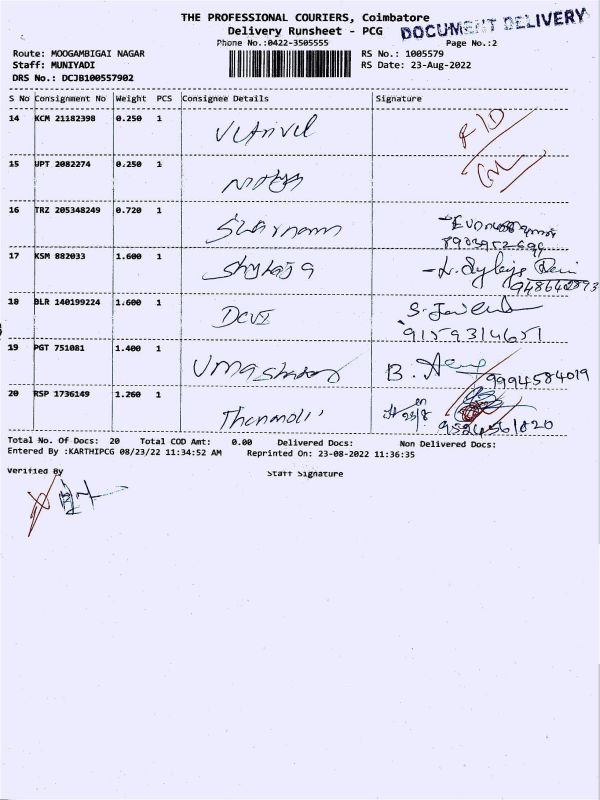 THE PROFESSIONAL COURIERS, Coimbatore
DOCUMENT DELIVERY
Delivery Runsheet - PCG
Phone No.:0422-3505555 Page No.:2
Route: MOOGAMBIGAI NAGAR RS No.: 1005579
Staff: MUNIYADI RS Date: 23-Aug-2022
DRS No.: DCJB100557902
S No Consignment No Weight PCS Consignee Details Signature
14 KCM 21182398 0.250 1
15 UPT 2082274 0.250 1
16 TRZ 205348249 0.720 1
17 KSM 882033 1.600 1 Shylaja
18 BLR 140199224 1.600 1 Devi
9159314651
19 PGT 751081 1.400 1 B.
9994584019
20 RSP 1736149 1.260 1 Thenmoli 23/8
Total No. Of Docs: 20 Total COD Amt: 0.00 Delivered Docs: Non Delivered Docs:
Entered By :KARTHIPCG 08/23/22 11:34:52 AM Reprinted On: 23-08-2022 11:36:35
Verified By Staff Signature